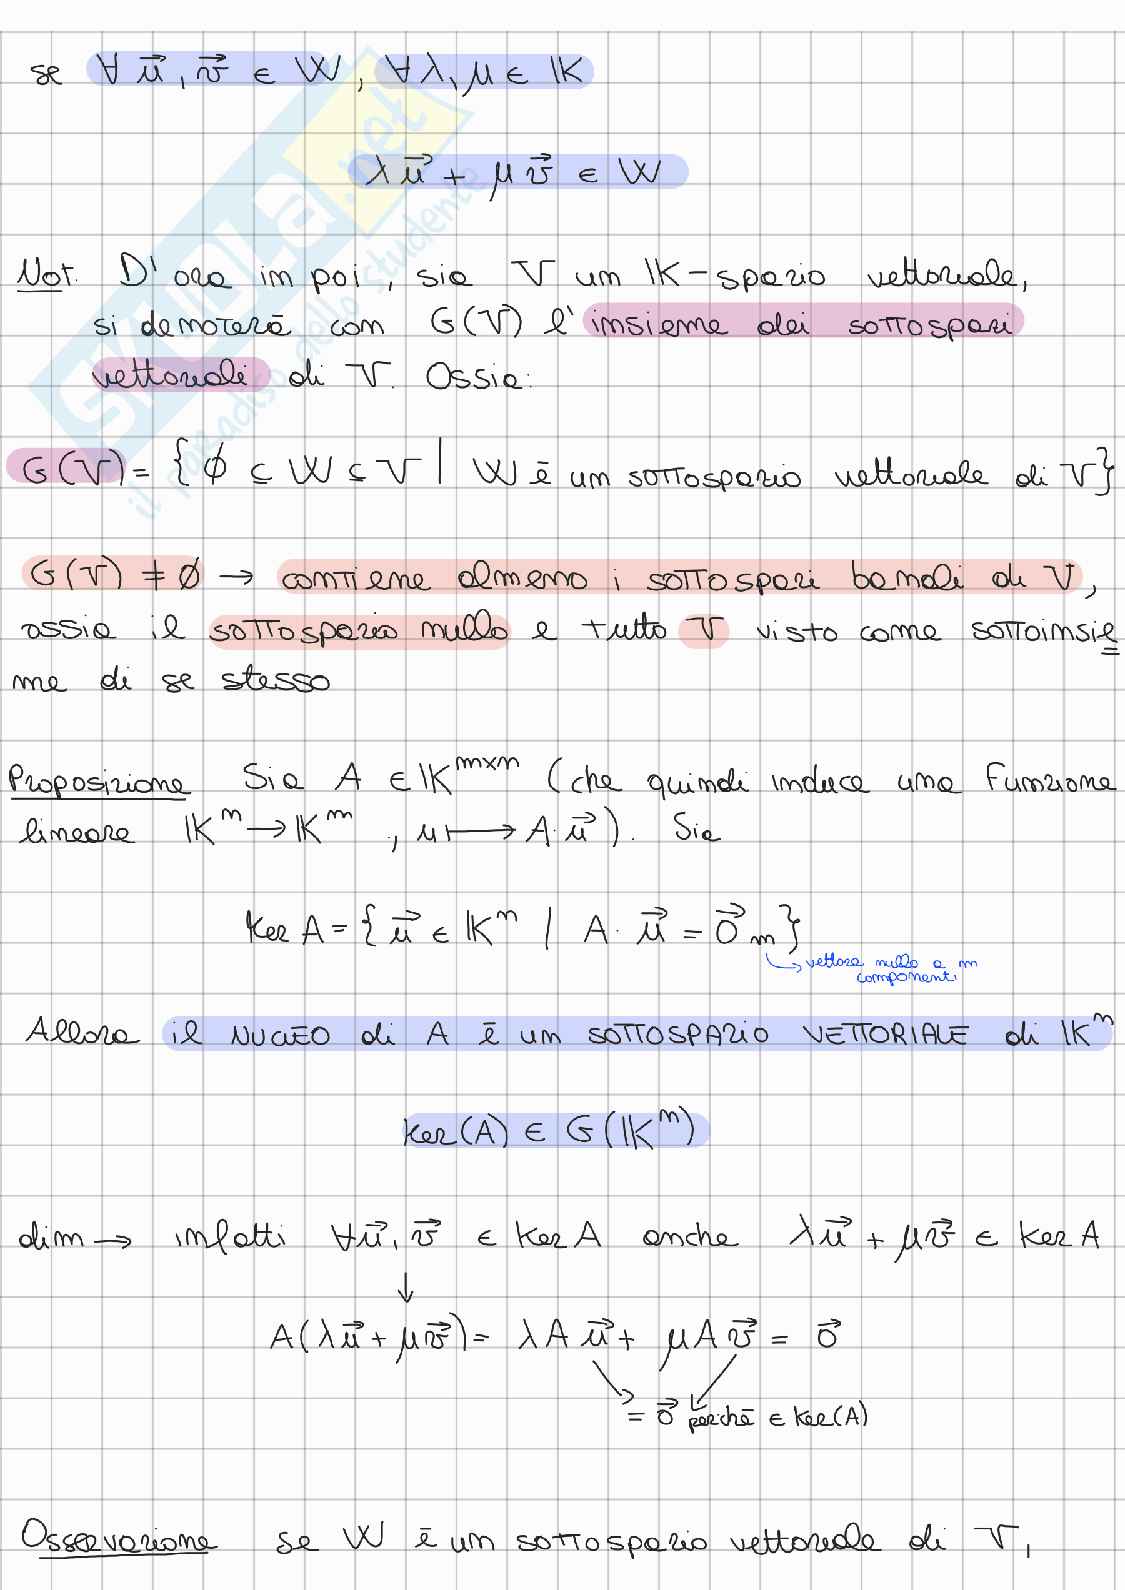 se ∀ u⃗, v⃗ ∈ W, ∀ λ, μ ∈ K
λu⃗ + μv⃗ ∈ W
Not. D'ora in poi, sia V un K-spazio vettoriale,
si denoterà con G(V) l'insieme dei sottospazi
vettoriali di V. Ossia:
G(V) = {∅ ⊆ W ⊆ V | W è un sottospazio vettoriale di V}
G(V) ≠ ∅ → contiene almeno i sottospazi banali di V,
ossia il sottospazio nullo e tutto V visto come sottoinsie
me di se stesso
Proposizione Sia A ∈ K^{m×n} (che quindi induce una funzione
lineare K^n → K^m, u ↦ A·u⃗). Sia
ker A = {u⃗ ∈ K^n | A·u⃗ = 0⃗_m}
→ vettore nullo a m
componenti
Allora il NUCLEO di A è un SOTTOSPAZIO VETTORIALE di K^n
ker(A) ∈ G(K^n)
dim → infatti ∀u⃗, v⃗ ∈ ker A anche λu⃗ + μv⃗ ∈ ker A
↓
A(λu⃗ + μv⃗) = λAu⃗ + μAv⃗ = 0⃗
= 0⃗ perché ∈ ker(A)
Osservazione se W è un sottospazio vettoriale di V,
SKUOLA.net
il paradiso dello studente